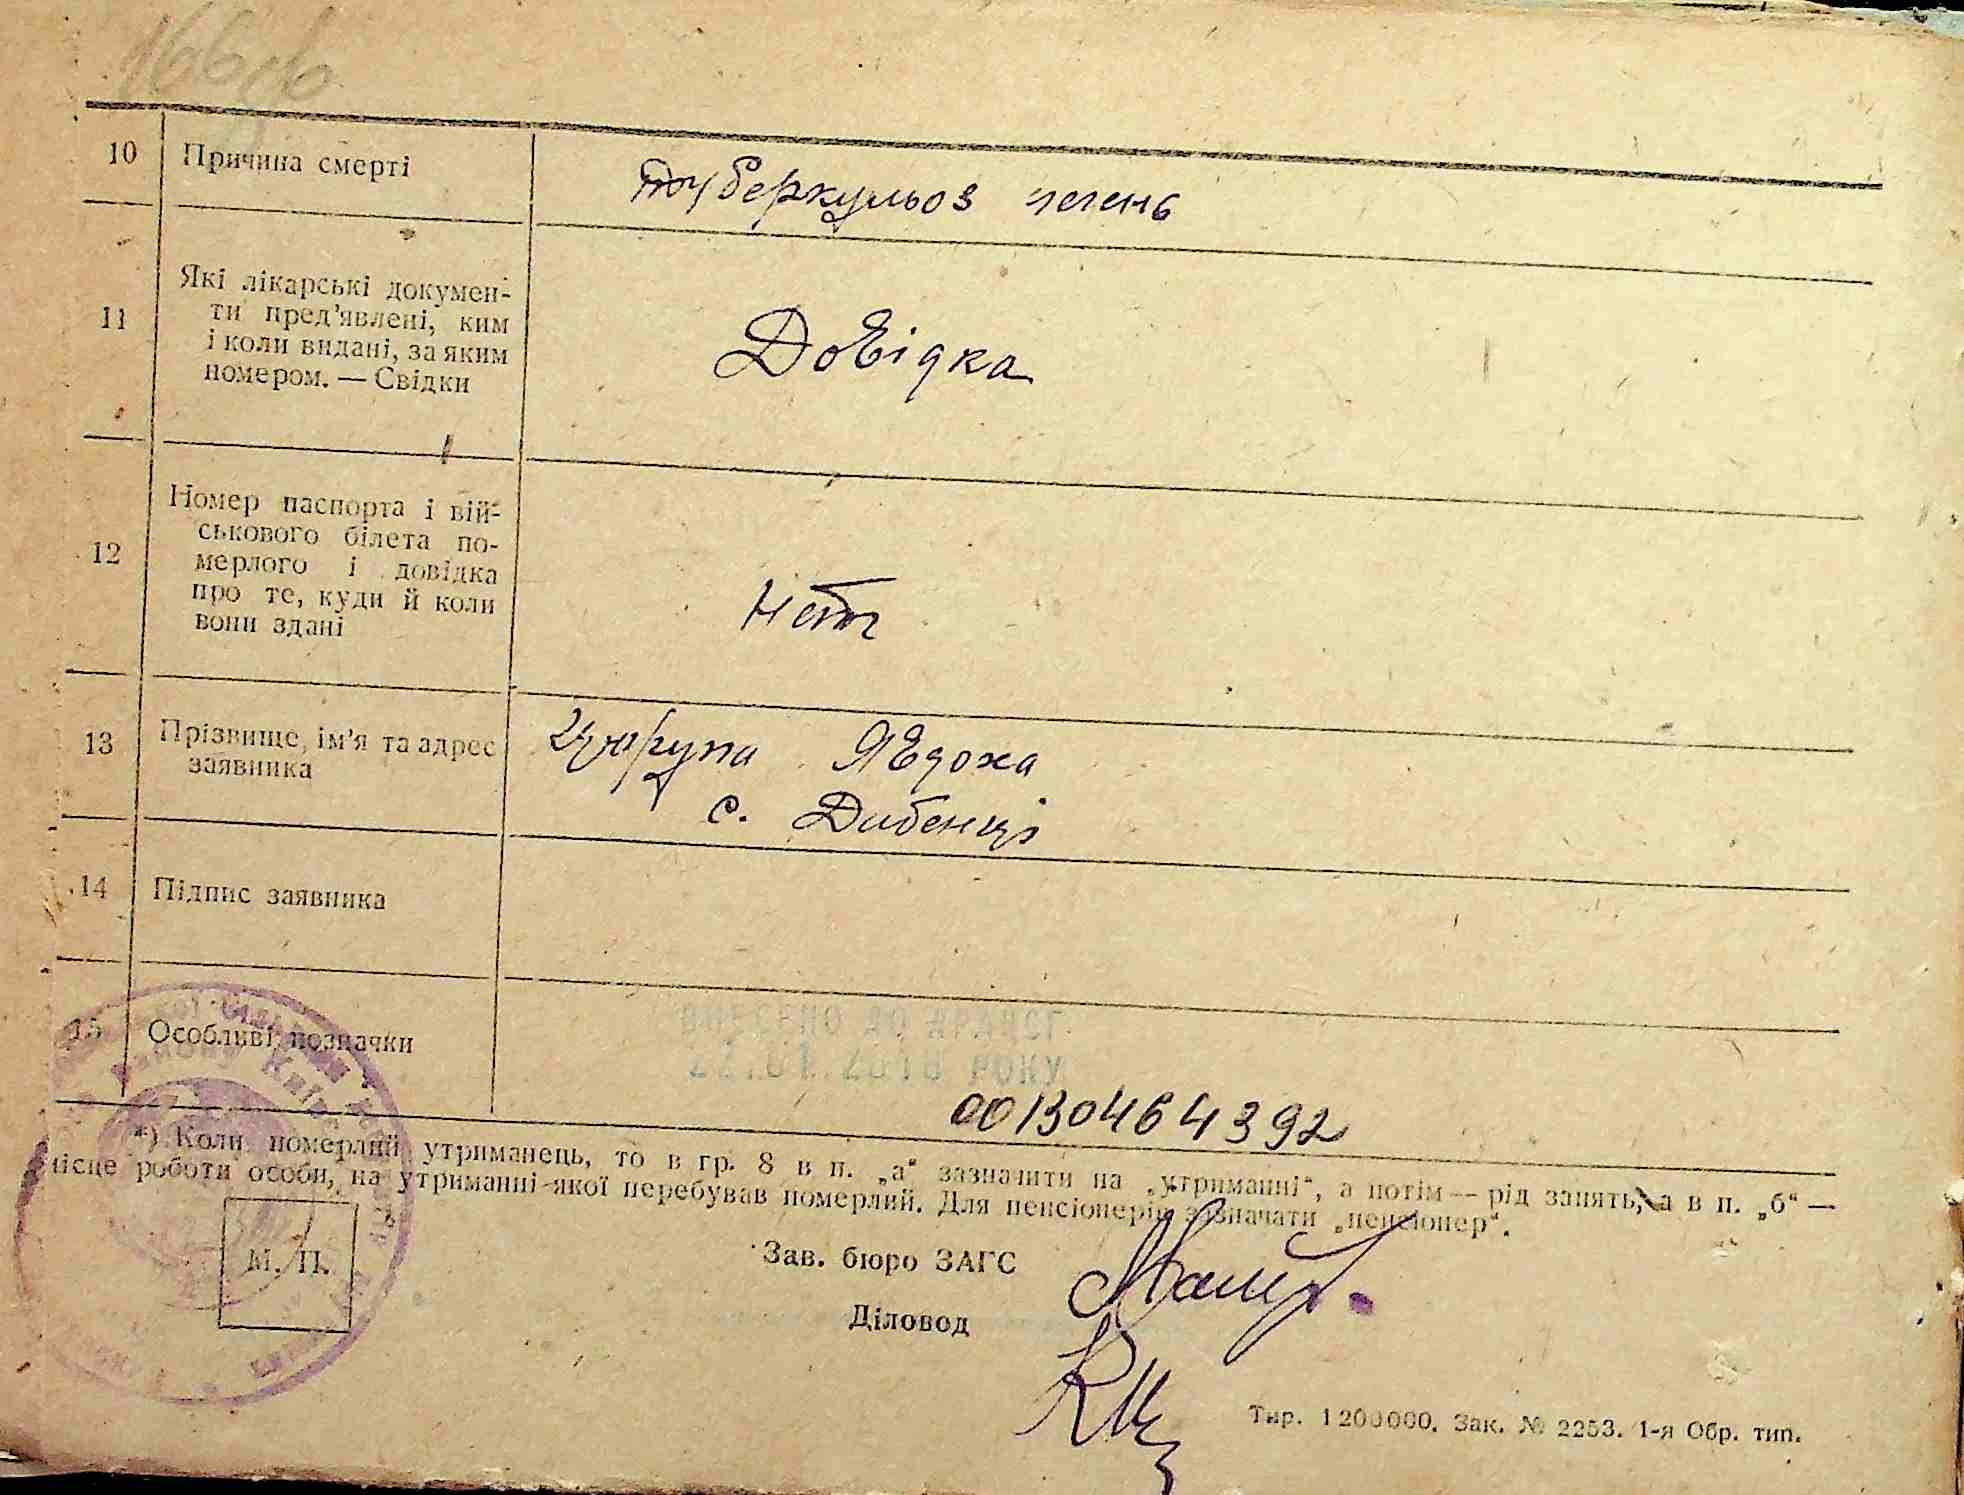 10 Причина смерті Туберкульоз легень
11 Які лікарські докумен-
ти пред'явлені, ким
і коли видані, за яким
номером. — Свідки
Довідка
12 Номер паспорта і вій-
ськового білета по-
мерлого і довідка
про те, куди й коли
вони здані
Нет
13 Прізвище, ім'я та адрес
заявника
Цюрупа Явдоха
с. Дибенці
14 Підпис заявника
15 Особливі позначки
ВНЕСЕНО ДО ДРАЦСГ
22.01.2018 РОКУ
00130464392
*) Коли померлий утриманець, то в гр. 8 в п. „а“ зазначити на „утриманні“, а потім — рід занять, а в п. „б“ —
місце роботи особи, на утриманні якої перебував померлий. Для пенсіонерів зазначати „пенсіонер“.
М. П.
Зав. бюро ЗАГС
Діловод
Тир. 1200000. Зак. № 2253. 1-я Обр. тип.